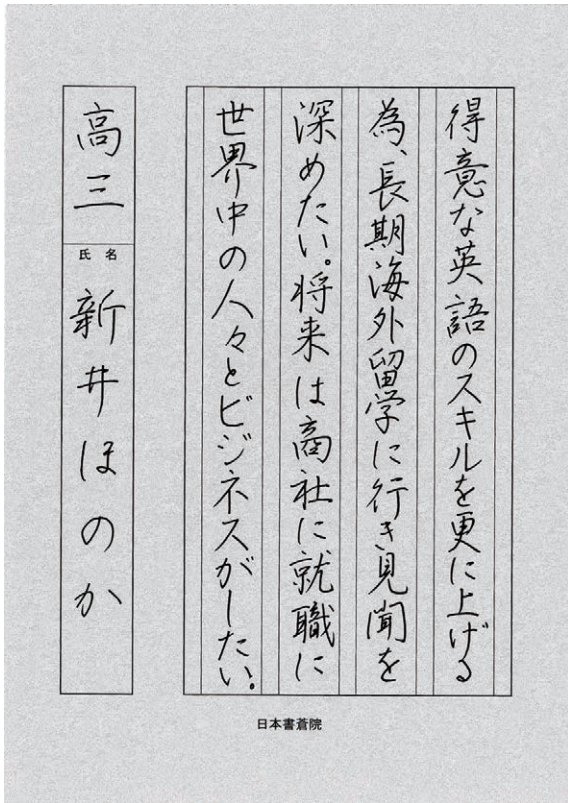 得意な英語のスキルを更に上げる
為、長期海外留学に行き見聞を
深めたい。将来は商社に就職に
世界中の人々とビジネスがしたい。
高三
氏名
新井ほのか
日本書蒼院